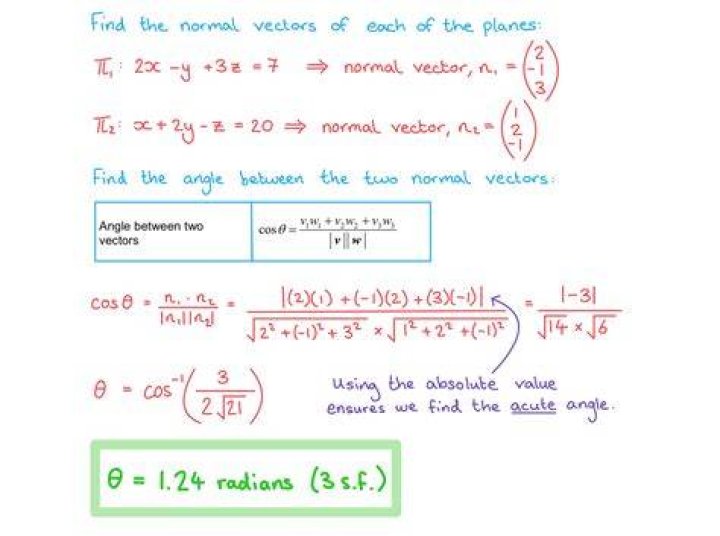 Find the normal vectors of each of the planes:
π₁: 2x - y + 3z = 7 ⇒ normal vector, n₁ = (2 -1 3)
π₂: x + 2y - z = 20 ⇒ normal vector, n₂ = (1 2 -1)
Find the angle between the two normal vectors:
Angle between two vectors
cosθ = (v₁w₁ + v₂w₂ + v₃w₃) / |v||w|
cosθ = n₁·n₂ / |n₁||n₂| = |(2)(1) + (-1)(2) + (3)(-1)| / √(2² + (-1)² + 3²) × √(1² + 2² + (-1)²) = |-3| / √14 × √6
θ = cos⁻¹(3 / 2√21)
Using the absolute value
ensures we find the acute angle.
θ = 1.24 radians (3 s.f.)